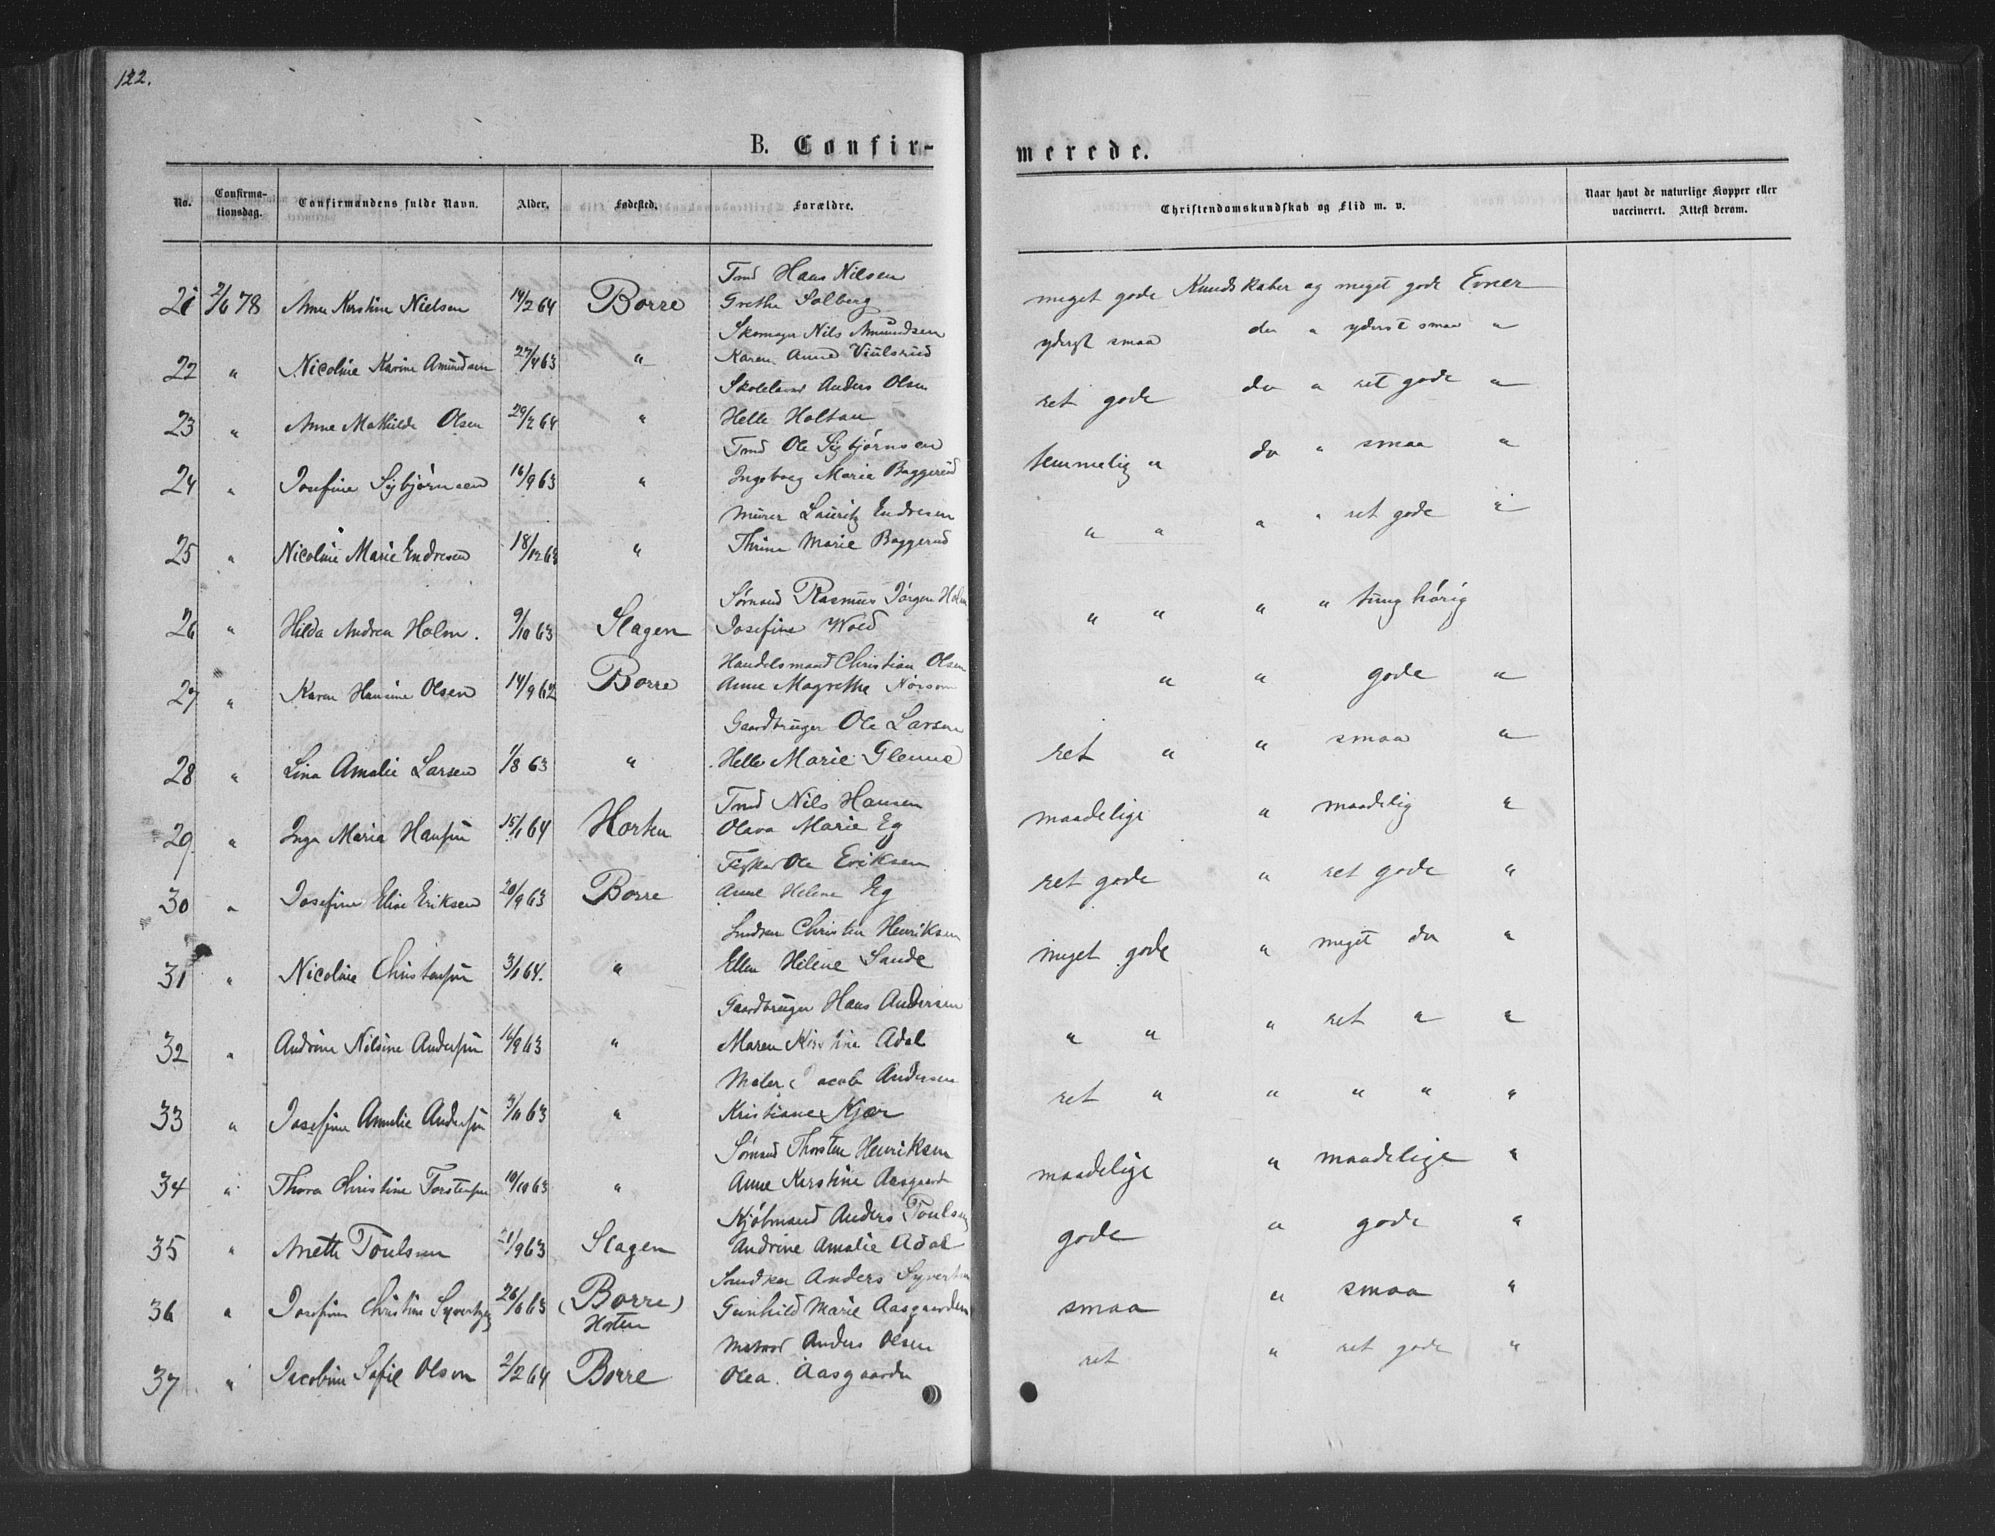 122.
B. Confir-
merede.
No. Confirma-tionsdag. Confirmandens fulde Navn. Alder. Fødested. Forældre. Christendomskundskab og Flid m. v. Naar havt de naturlige Kopper eller vaccineret. Attest derom.
Tmd Hans Nilsen
21 2/6 78 Anne Kerstine Nielsen 14/2 64 Borre Grethe Solberg meget gode Kundskaber og meget gode Evner
Skomager Nils Amundsen
22 " Nicoline Karine Amundsen 27/4 63 " Karen Anne Viulsrud yderst smaa do " yderst smaa "
Anders Olsen
23 " Anne Mathilde Olsen 29/2 64 " Helle Holtan ret gode do " ret gode "
Tmd Ole Sigbjørnsen
24 " Josefine Sigbjørnsen 16/9 63 " Ingeborg Maria Baggerud temmelig " do " smaa "
Murer Lauritz Endresen
25 " Nicoline Marie Endresen 18/12 63 " Thrine Marie Baggerud " " " " ret gode "
Sømand Rasmus Jørgen Holm
26 " Hilda Andrea Holm. 9/10 63 Slagen Josefine Wold " " " " tung hørig
Handelsmand Christian Olsen
27 " Karen Hansine Olsen 14/9 62 Borre Anne Magrethe " " gode "
Gaardbruger Ole Larsen
28 " Lina Amalie Larsen 1/8 63 " Helle Marie Glenne ret " " smaa "
Tmd Nils Hansen
29. " Inga Maria Hansen 15/1 64 Horten Olava Marie Eg maadelige " maadelig "
Fisker Ole Eriksen
30 " Josefine Elise Eriksen 20/9 63 Borre Anne Helene Eg ret gode " ret gode "
Christen Henriksen
31 " Nicoline Christensen 3/1 64. " Ellen Helene Sande meget gode " meget do "
Gaardbruger Hans Andersen
32 " Andrine Nilsine Andersen 16/9 63 " Maren Kirstine Adal " " " ret " "
Maler Jacob Andersen
33 " Josefine Amalie Andersen 3/11 63 " Kristiane Kjær ret " " " " "
Sømand Thorsten Henriksen
34 " Thora Christine Torstensen 10/10 63 " Anne Kerstine Aasgaarden maadelige " maadelige "
Kjøbmand Anders Poulsen
35 " Anette Poulsen 21/9 63 Slagen Andrine Amalie Adal gode " gode "
Anders Syvertsen
36 " Josefine Christine Syvertsen 26/6 63 (Borre) Horten Gunhild Marie Aasgaarden smaa " smaa "
Anders Olsen
37 " Jacobine Sofie Olsen 2/2 64 Borre Olea Aasgaarden ret " ret gode "